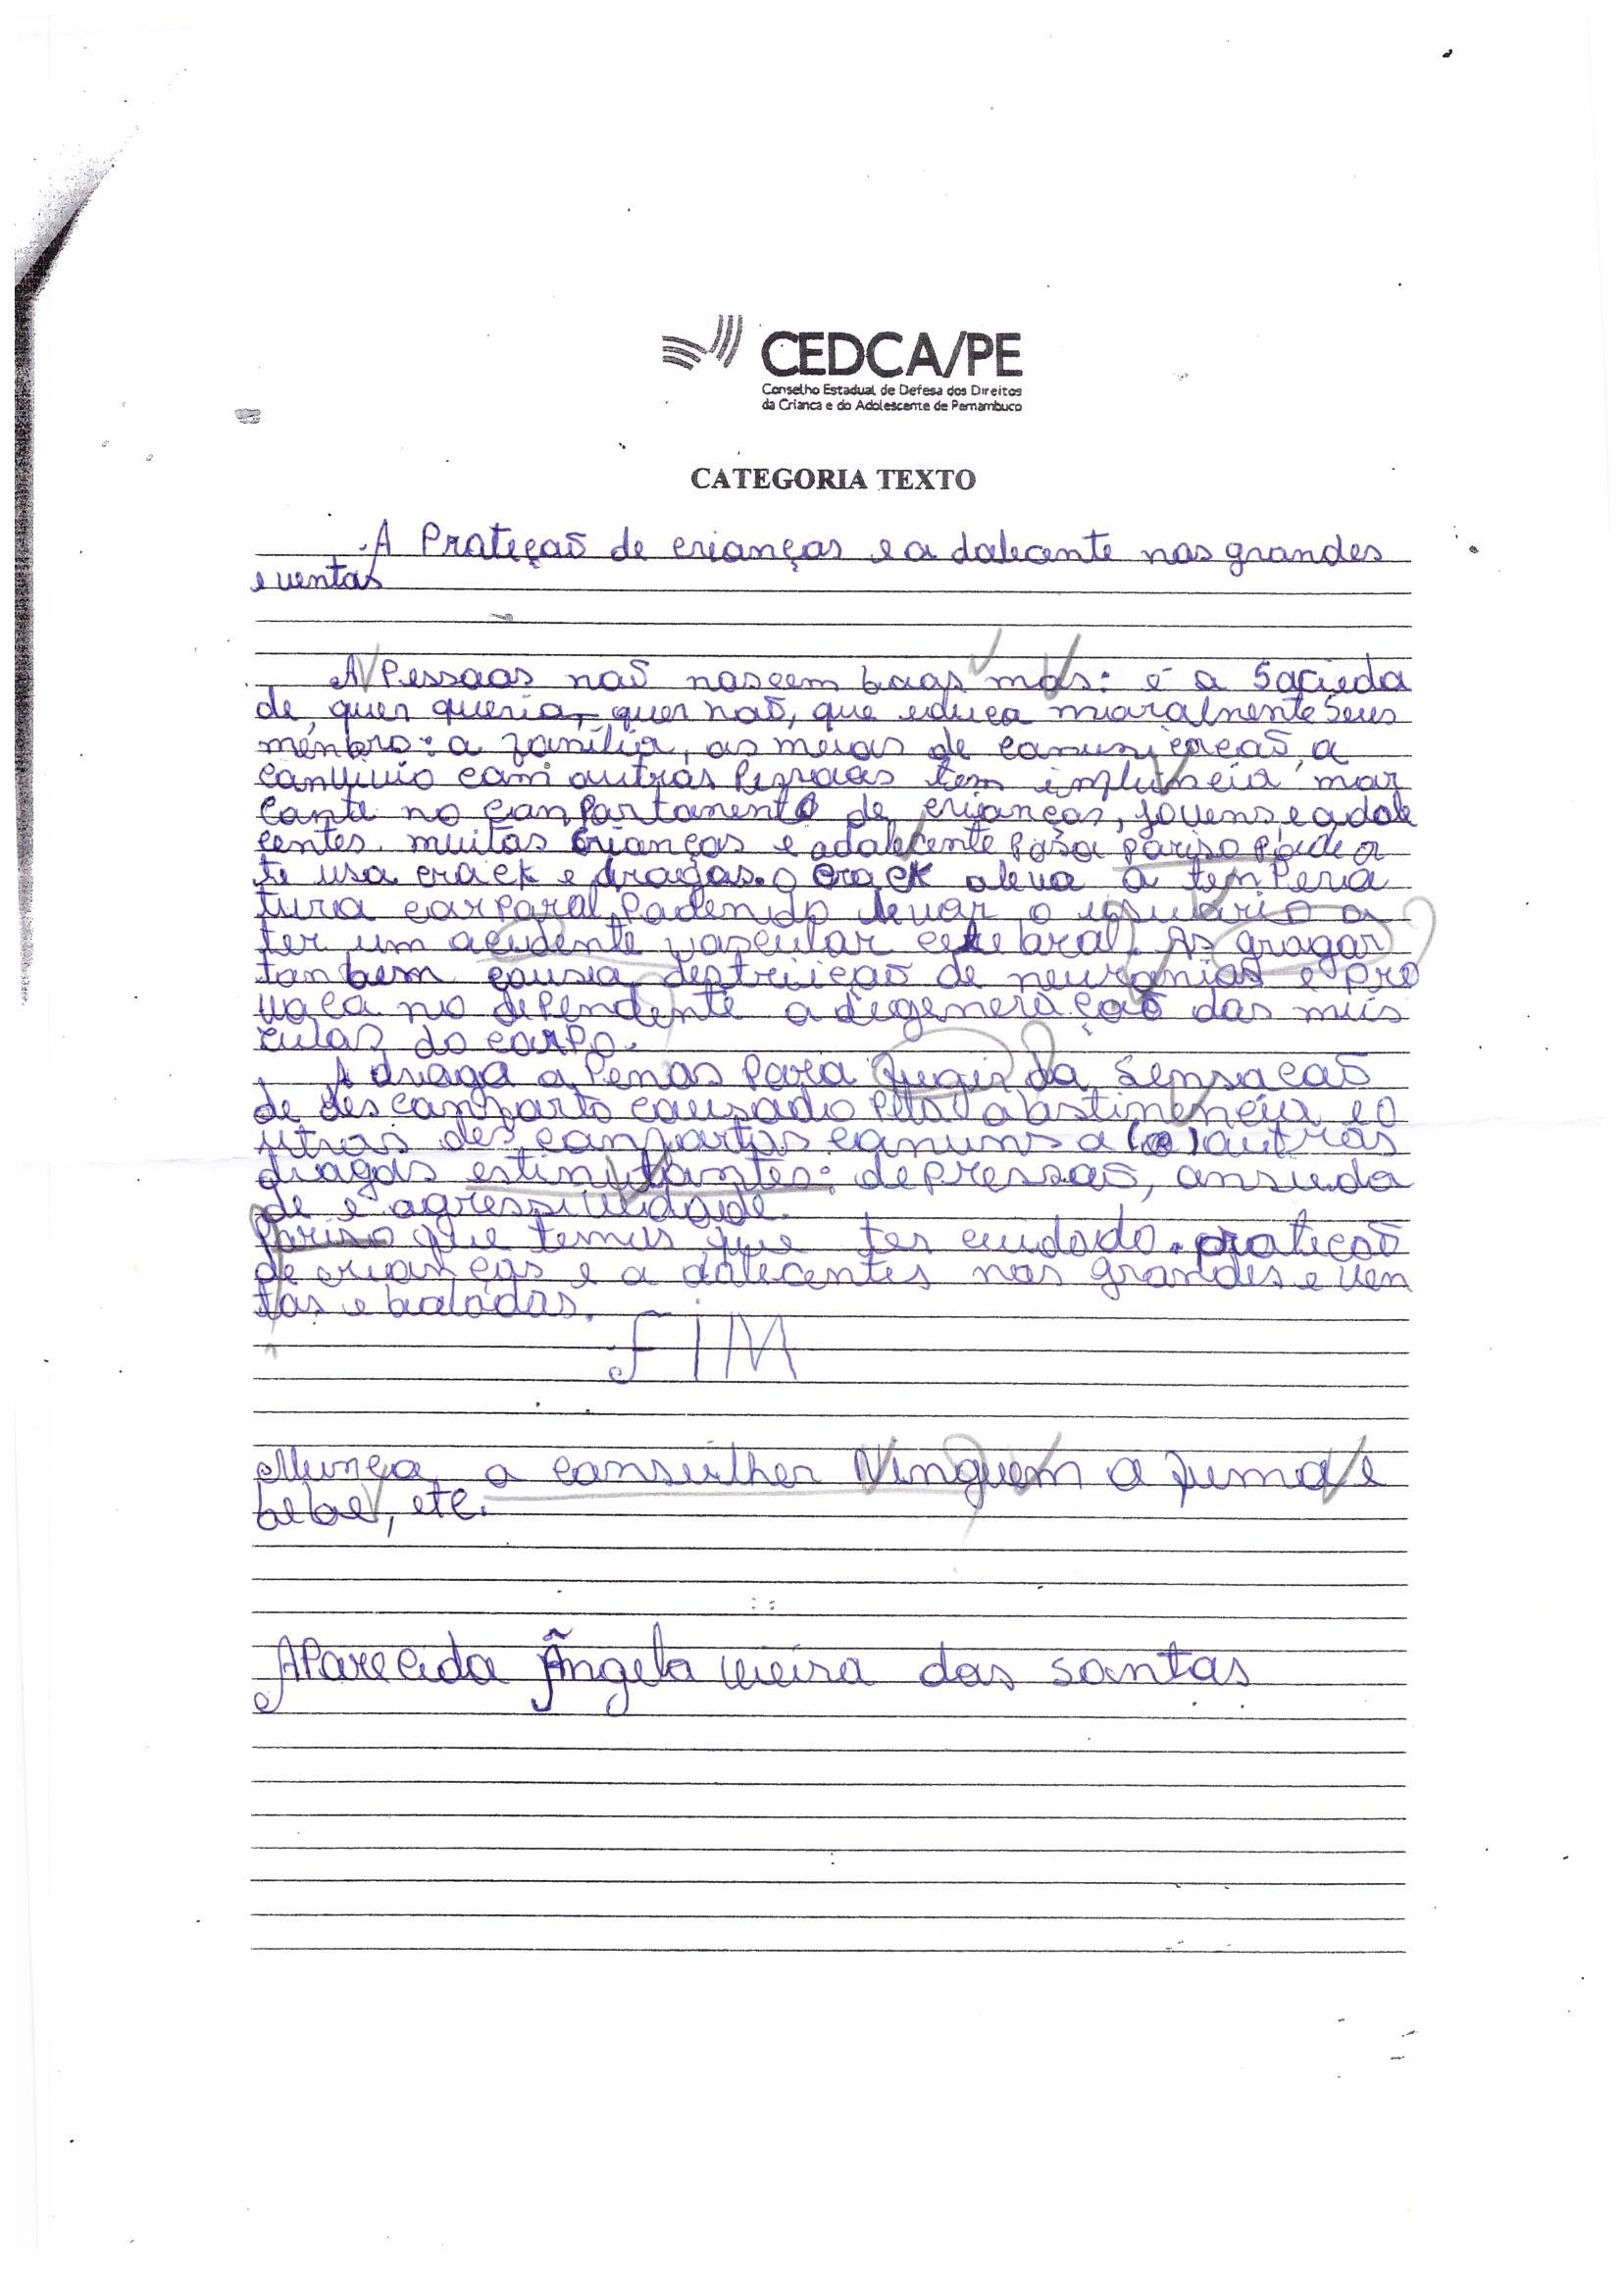 CEDCA/PE
Conselho Estadual de Defesa dos Direitos
da Crianca e do Adolescente de Pernambuco
CATEGORIA TEXTO
A Proteçaõ de crianças e a dolecente nos grandes
eventos
A Pessoas naõ nascem boas mas: é a Socieda
de, quer queria, quer naõ, que educa moralmente seus
menbro: a família, os meios de comunicacaõ, a
convivio com outras Pessoas tem influncia mar
cante no conportamento de crianças, jovens, e adole
centes. muitas crianças e adolecente pasa pariso pode a
te usa crack e drogas. o crack aleva a temPera
tura corporal, Podendo levar o usuário a
ter um acidente vascular cerebral. As gragar
tanbem causa destruiçaõ de neuronios e pro
voca no dependente a degeneraçaõ das mús
culas do corpo.
A droga aPenas Para fugir da sensacaõ
de desconforto causado pela abastinencia e o
utros desconfortos comuns a (a) outras
drogas estimutantes: depressaõ, ansieda
de e agressividade.
pariso que temos que ter cuidado. proteçaõ
de crianças e a dolecentes nos grandes even
tos e baladas.
FIM
Nunca a conseilher Ninguem a fuma e
bebe, etc.
Aparecida Ângela vieira dos santos